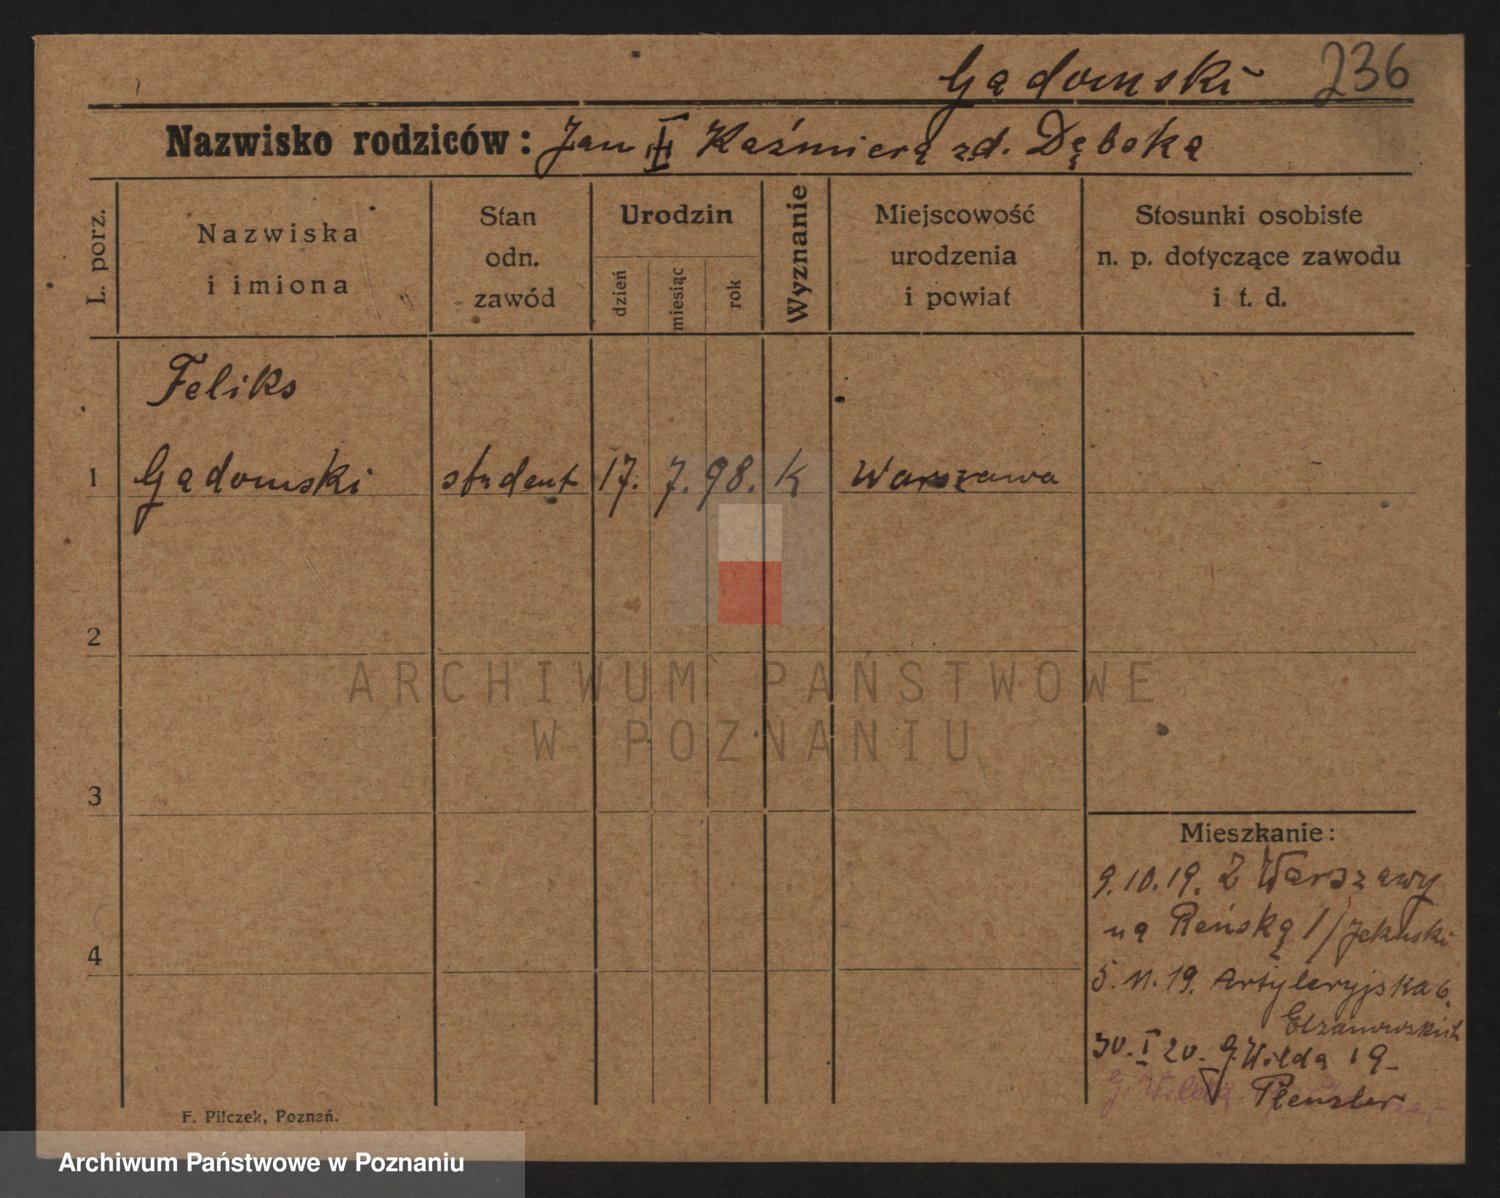 Gadomski 236
Nazwisko rodziców: Jan Kaźmiera zd. Dębska
L. porz.
Nazwiska
i imiona
Stan
odn.
zawód
Urodzin
dzień
miesiąc
rok
Wyznanie
Miejscowość
urodzenia
i powiat
Stosunki osobiste
n. p. dotyczące zawodu
i t. d.
Feliks
1 Gadomski student 17. 7. 98. K Warszawa
2
3
4
ARCHIWUM PAŃSTWOWE
W POZNANIU
Mieszkanie:
9.10.19. Z Warszawy
na Reńską 1/
5.11.19. Artyleryjska 6.
30. I 20. G. Wilda 19
G. Wilda
F. Pilczek, Poznań.
Archiwum Państwowe w Poznaniu